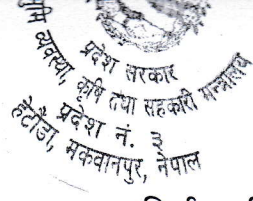 व्यवस्था, कृषि तथा सहकारी मन्त्रालय
प्रदेश सरकार
प्रदेश नं. ३
हेटौंडा, मकवानपुर, नेपाल